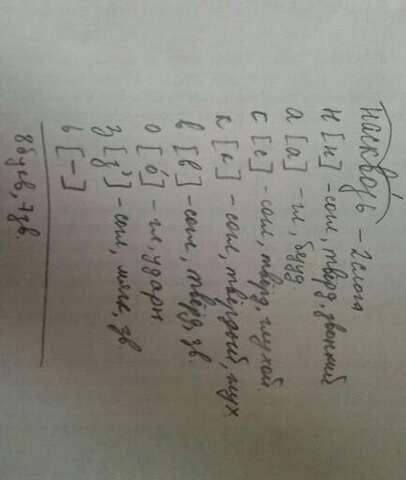 насквозь – 2 слога
н [н] – согл, тверд, звонкий
а [а] – гл, безуд
с [с] – согл, тверд, глухой
к [к] – согл, твёрдый, глух
в [в] – согл, твёрд, зв.
о [о́] – гл, ударн
з [з'] – согл, мягк, зв.
ь [–]
8 букв, 7 зв.